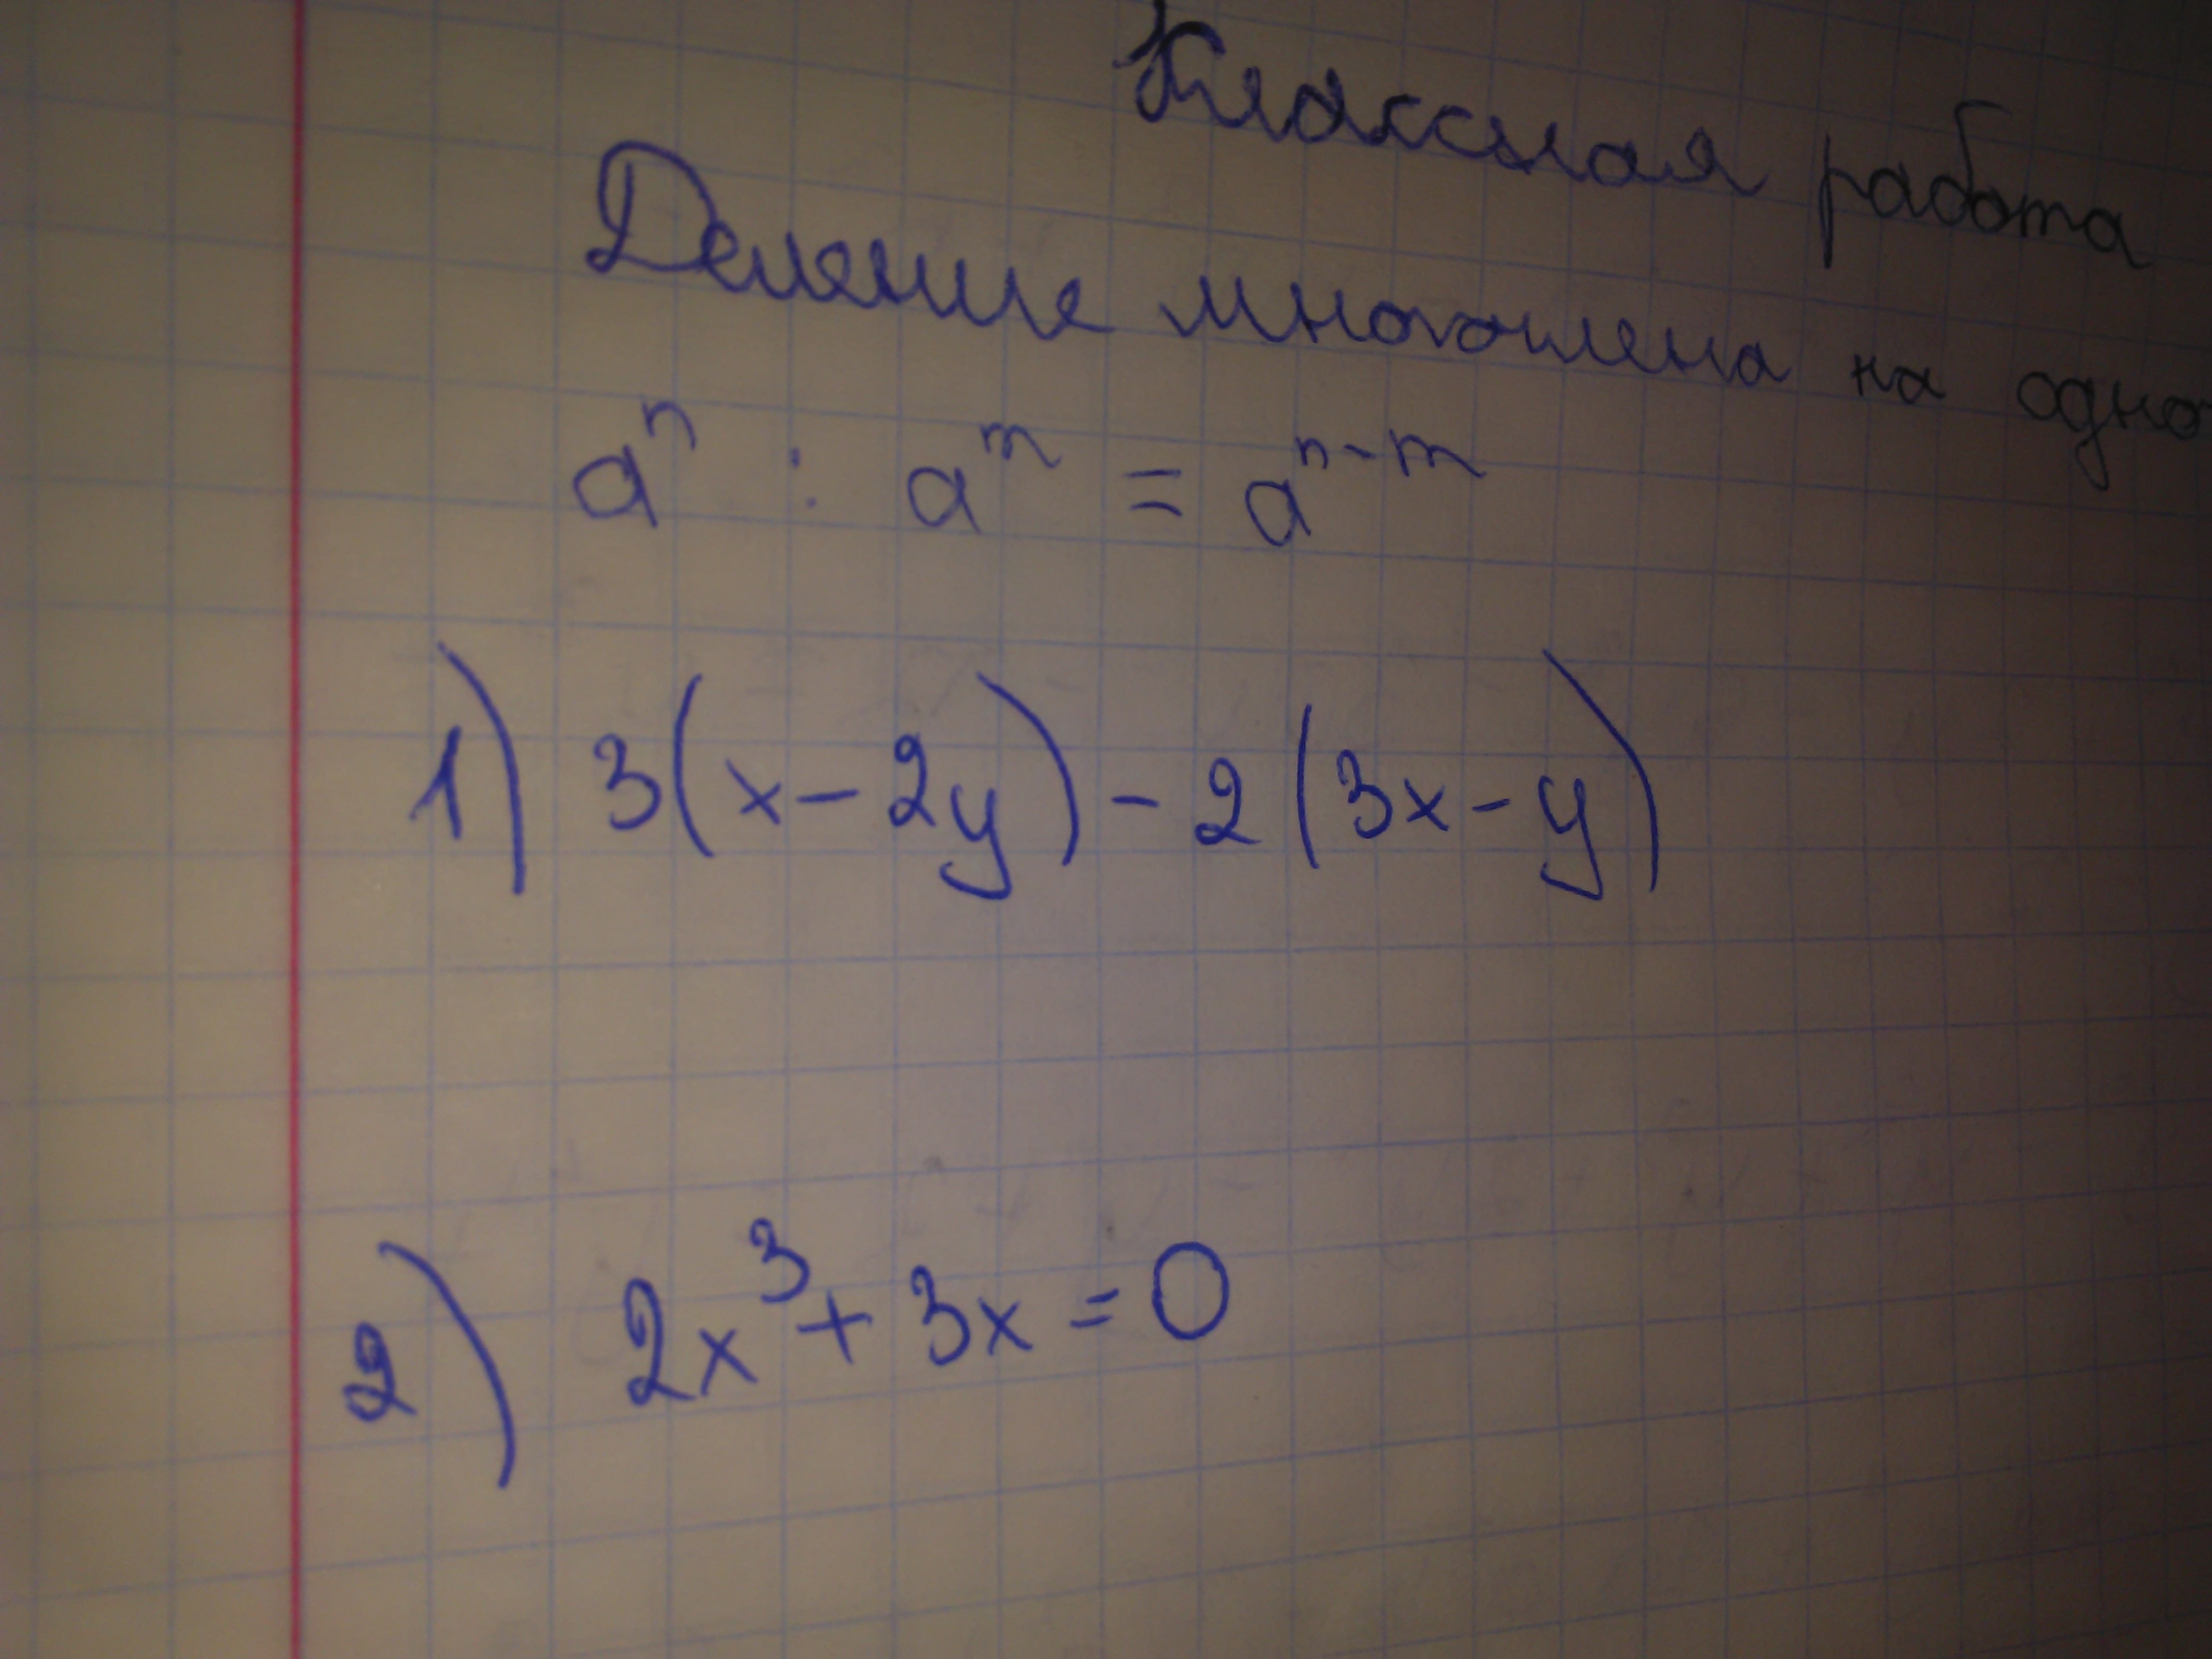 Классная работа
Деление многочлена на одно
aⁿ : aᵐ = aⁿ⁻ᵐ
1) 3(x-2y)-2(3x-y)
2) 2x³+3x=0